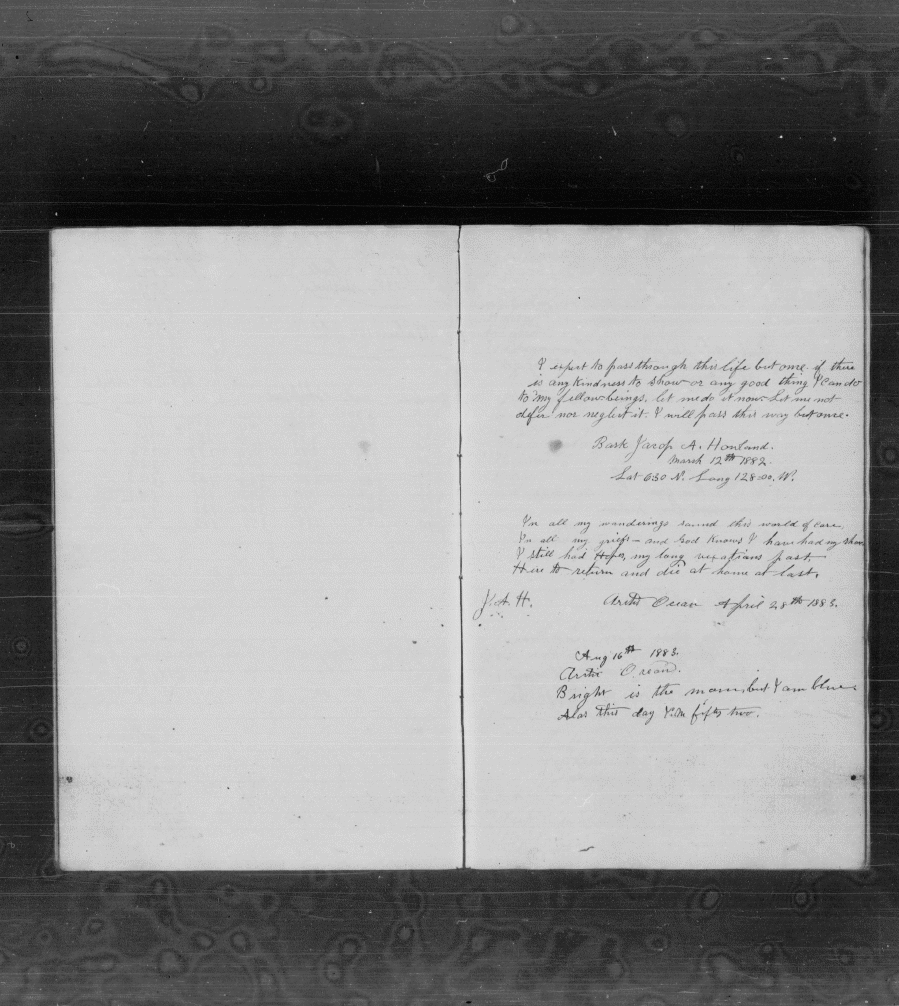 I expect to pass through this life but once. if there
is any kindness to show or any good thing I can do
to my fellow beings, let me do it now. Let me not
defer nor neglect it. I will pass this way but once.
Bark Jacob A. Howland.
March 12th 1882.
Lat 6.30 N. Long 128.00. W.
In all my wanderings round this world of care,
In all my griefs - and God knows I have had my share
I still had Hope, my long vexations past,
Here to return and die at home at last.
J. A. H. Arctic Ocean April 28th 1883.
Aug 16th 1883.
Arctic Ocean.
Bright is the morn, but I am blue
Alas this day I'm fifty two.